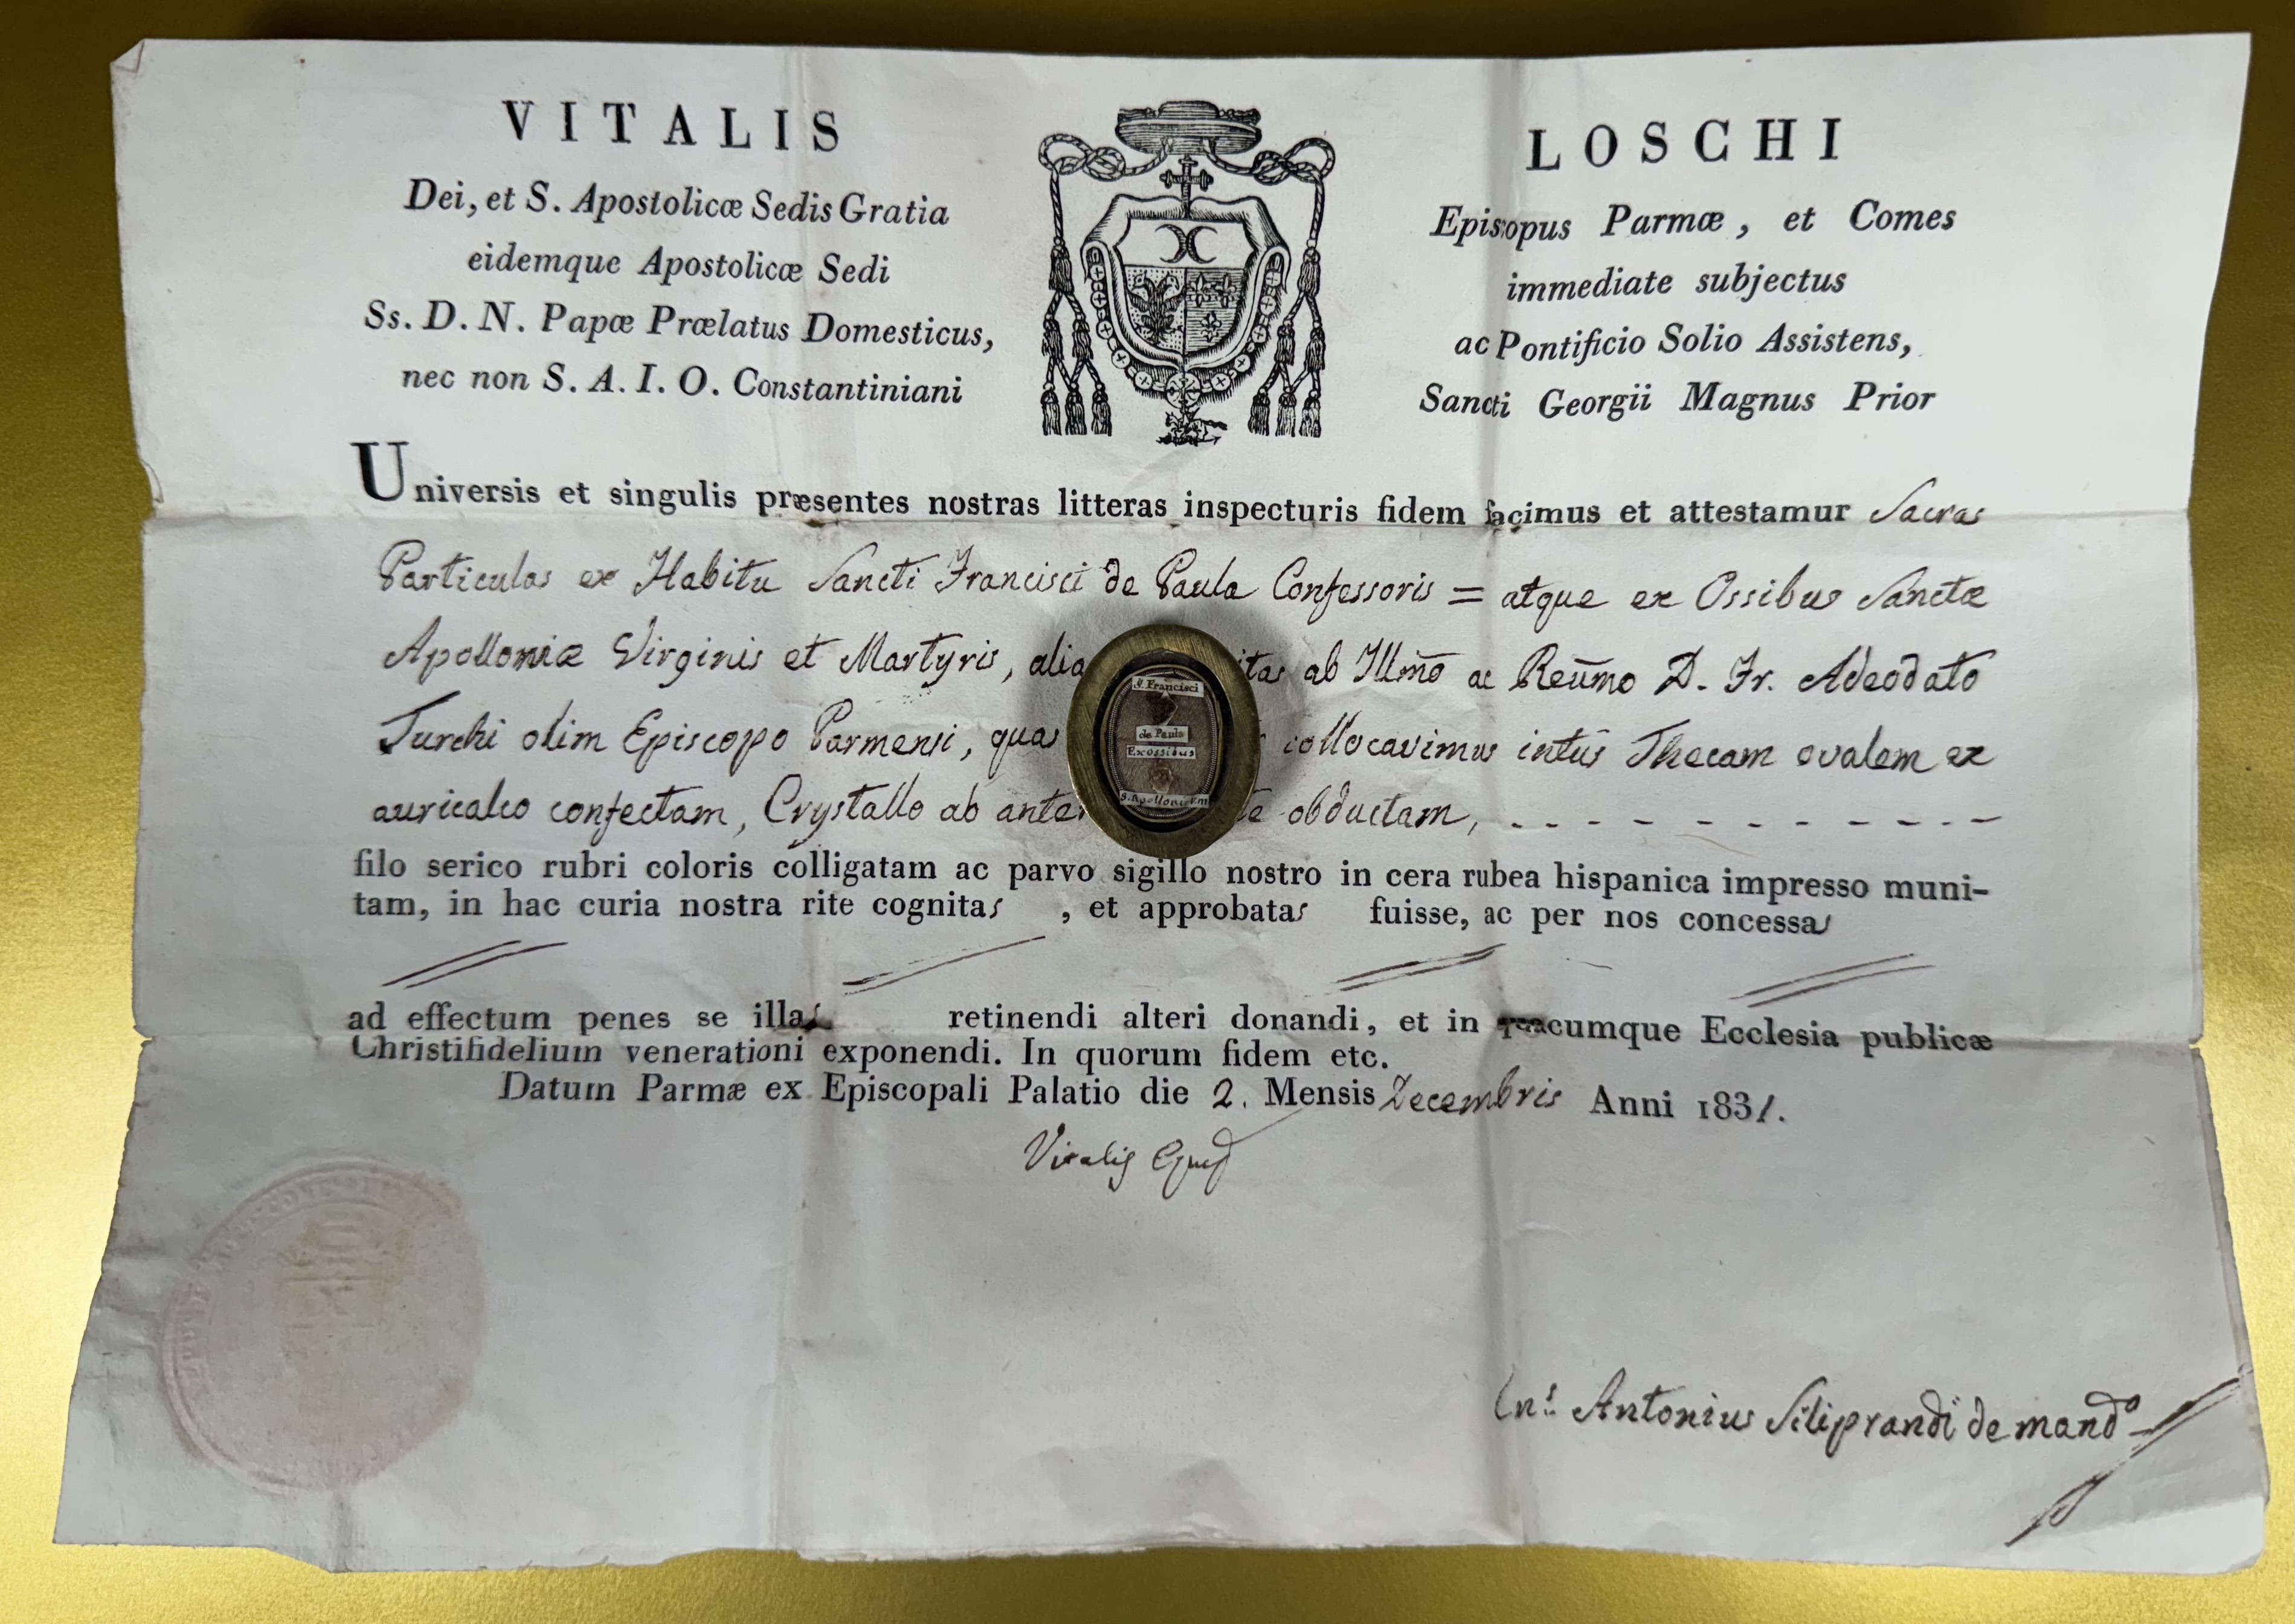 VITALIS LOSCHI
Dei, et S. Apostolicæ Sedis Gratia Episcopus Parmæ, et Comes
eidemque Apostolicæ Sedi immediate subjectus
Ss. D. N. Papæ Prælatus Domesticus, ac Pontificio Solio Assistens,
nec non S. A. I. O. Constantiniani Sancti Georgii Magnus Prior
Universis et singulis præsentes nostras litteras inspecturis fidem facimus et attestamur Sacras
Particulas ex Habitu Sancti Francisci de Paula Confessoris = atque ex Ossibus Sanctæ
Apolloniæ Virginis et Martyris, ab Illmo ac Reumo D. Fr. Adeodato
Turchi olim Episcopo Parmensi, quas collocavimus intus Thecam ovalem ex
auricalco confectam, Crystallo ab obductam,
filo serico rubri coloris colligatam ac parvo sigillo nostro in cera rubea hispanica impresso muni-
tam, in hac curia nostra rite cognitas , et approbatas fuisse, ac per nos concessas
ad effectum penes se illas retinendi alteri donandi, et in quacumque Ecclesia publicæ
Christifidelium venerationi exponendi. In quorum fidem etc.
Datum Parmæ ex Episcopali Palatio die 2. Mensis Decembris Anni 1831.
Vitalis
Antonius Siliprandi de mando
S. Francisci
de Paula
Ex ossibus
S. Apolloniæ V.M.